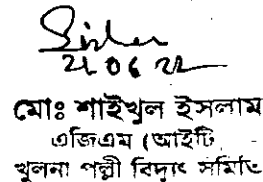 21 06 22
মোঃ শাইখুল ইসলাম
এজিএম (আইটি
খুলনা পল্লী বিদ্যুৎ সমিতি